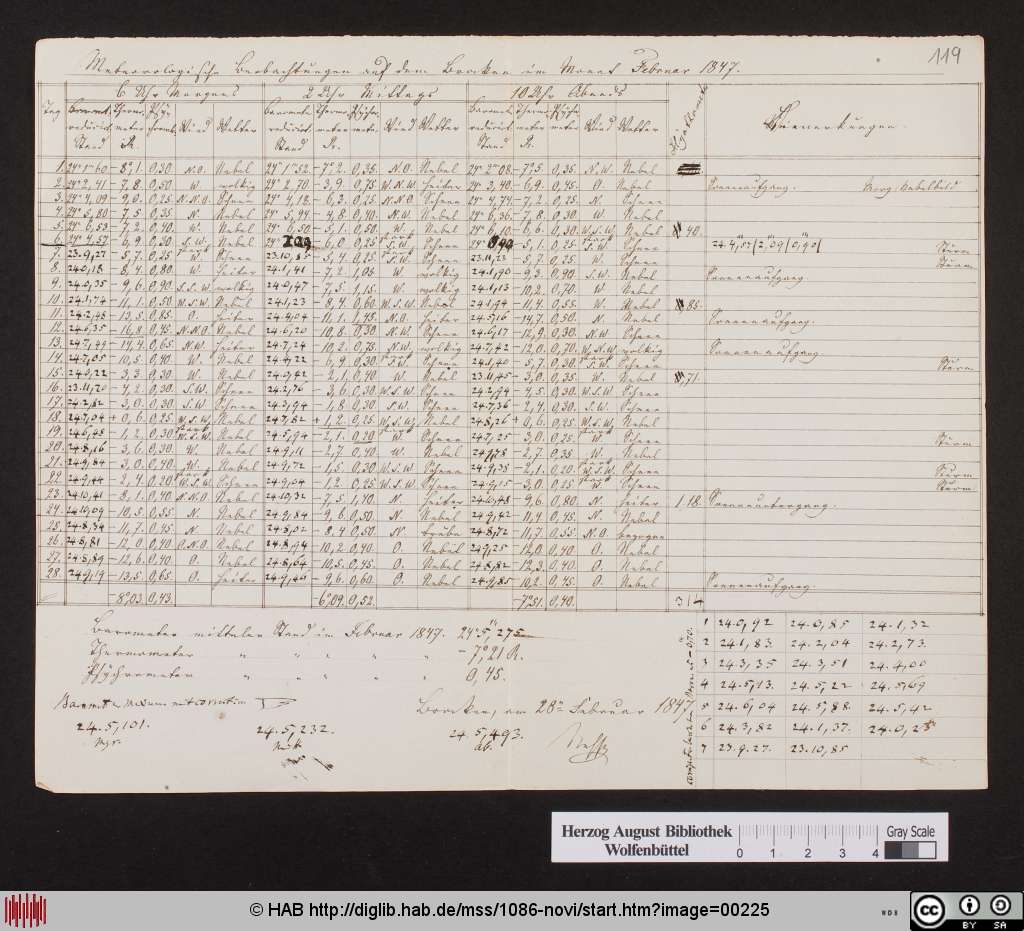 119
Meteorologische Beobachtungen auf dem Brocken im Monat Februar 1847.
6 Uhr Morgens 2 Uhr Mittags 10 Uhr Abends
Tag Wind Wetter Wind Wetter Wind Wetter Hyetometer Bemerkungen.
1. 24" 1"'60 − 8°,1. 0,30 N.O. Nebel 24" 1"'52. − 7°,2. 0,35. N.O. Nebel 24" 2"'08. − 7°,5. 0,35. N.W. Nebel
2. 24" 2,41 − 7,8. 0,50 W. wolkig 24" 2,70 − 3,9. 0,75. W.N.W. heiter 24" 3,40. − 6,9. 0,45. O. Nebel Sonnenaufgang.
3. 24" 4,09 − 9,0. 0,25. N.N.O. Schnee 24" 4,18. − 6,3. 0,25. N.N.O. Schnee 24" 4,74. − 7,2. 0,25. N. Schnee
4. 24" 5,80 − 7,5. 0,35 N. Nebel 24" 5,94 − 4,8. 0,40. N.W. Nebel 24" 6,36. − 7,8. 0,30. W. Nebel
5. 24" 6,53 − 7,2. 0,40. W. Nebel 24" 6,50 − 5,1. 0,50. W. Nebel 24" 6,10. − 6,6. 0,30. W.S.W. Nebel 40.
6. 24" 4,57 − 6,9. 0,30 S.W. Nebel 6,0. 0,25 S.W. Schnee − 5,1. 0,25 Schnee 24. 4,57 2,09 0,90 Sturm
7. 23.9,27 − 5,7. 0,25 W. Schnee 23.10,85 − 5,4. 0,25 S.W. Schnee 23.11,23 − 5,7. 0,25 W. Schnee Sturm
8. 24.0,18 − 8,4. 0,80. W. heiter 24.1,41 − 7,2. 1,05. W. wolkig 24.1,90 − 9,3. 0,90. S.W. Nebel Sonnenaufgang
9. 24.0,35 − 9,6. 0,90. S.S.W. wolkig 24.0,47 − 7,5. 1,15. W. wolkig 24.1,13 − 10,2. 0,70. W. Nebel
10. 24.1,74 − 11,1. 0,50 W.S.W. Nebel 24.1,23 − 8,4. 0,60 W.S.W. Nebel 24.1,94 − 11,4. 0,55. W. Nebel 85.
11. 24.2,48 − 13,5. 0,85. O. heiter 24.4,04 − 11,1. 1,45. N.O. heiter 24.5,16 − 14,7. 0,50. N. Nebel Sonnenaufgang.
12. 24.6,35 − 16,8. 0,45. N.N.O. Nebel 24.6,20 − 10,8. 0,30 N.W. Schnee 24.6,17 − 12,9. 0,30. N.W. Schnee
13. 24.7,44 − 14,4. 0,65 N.W. heiter 24.7,24 − 10,2. 0,75. N.W. wolkig 24.7,42 − 12,0. 0,70. W.N.W. wolkig Sonnenaufgang
14. 24.7,05 − 10,5. 0,40. W. Nebel 24.4,22 0,30 Schnee 24.1,40 − 5,7. 0,30. S.W. Schnee Sturm
15. 24.0,22 − 3,3. 0,30 W. Nebel 24.0,42 − 2,1. 0,40 W. Nebel 23.11,45 − 3,0. 0,35. W. Nebel 71.
16. 23.11,70 − 4,2. 0,30. S.W. Schnee 24.2,76 − 3,6. 0,30 W.S.W. Schnee 24.2,94 − 4,5. 0,30. W.S.W. Schnee
17. 24.2,82 − 3,0. 0,30 S.W. Schnee 24.3,94 − 1,8. 0,30 S.W. Schnee 24.7,36 − 2,4. 0,30. S.W. Schnee
18. 24.7,04 + 0,6. 0,25. W.S.W. Nebel 24.7,82 + 1,2. 0,25 W.S.W. Nebel 24.8,26 + 0,6. 0,25. W.S.W. Nebel
19. 24.6,48 − 1,2. 0,30 W.S.W. Nebel 24.5,94 − 2,1. 0,20 W. Schnee 24.7,25 − 3,0. 0,25. W. Schnee Sturm
20. 24.8,16 − 3,6. 0,30. W. Nebel 24.9,11 − 2,7. 0,40 W. Nebel − 2,7. 0,35. W. Nebel
21. 24.9,84 − 3,0. 0,40. W. Nebel 24.9,72 − 1,5. 0,30 W.S.W. Schnee 24.9,38 − 2,1. 0,20 W.S.W. Schnee Sturm
22. 24.9,44 − 2,4. 0,20 W.S.W. Schnee 24.9,04 − 1,2. 0,25 W.S.W. Schnee 24.9,15 − 3,0. 0,25 W. Schnee Sturm
23. 24.10,41 − 8,1. 0,40 N.N.O. Nebel 24.10,32 − 7,5. 1,40. N. heiter 24.10,48 − 9,6. 0,80. N. heiter 1.18. Sonnenuntergang.
24. 24.10,09 − 10,5. 0,55 N. Nebel 24.9,84 − 9,6. 0,50 N. Nebel 24.9,42 − 11,4. 0,45. N. Nebel
25. 24.8,34 − 11,7. 0,45 N. Nebel 24.8,02 − 8,4. 0,50 N. trübe 24.8,72 − 11,7. 0,55. N.O. bezogen
26. 24.8,81 − 12,0. 0,40 O.N.O. Nebel 24.8,94 − 10,2. 0,40 O. Nebel 24.9,25 12,0. 0,40 O. Nebel
27. 24.8,89 − 12,6. 0,40. O. Nebel 24.8,64 − 10,5. 0,45. O. Nebel 24.8,82 − 12,3. 0,40 O. Nebel
28. 24.9,19 − 13,5. 0,65. O. heiter 24.9,40 − 9,6. 0,60 O. Nebel 24.9,85 − 10,2. 0,45. O. Nebel Sonnenaufgang.
− 8°,03. 0,43. − 6°,09. 0,52. − 7°,51. 0,40. 314
Barometer mittelen Stand im Februar 1847. 24" 5,"'275
Thermometer " " " " " − 7°,21 R.
Psychrometer " " " " " 0,45.
Brocken, am 28ten Februar 1847
24.5,101. 24.5,232. 24.5,493.
Mgr. Mitt. Ab.
1 24.0,92 24.0,85 24.1,32
2 24.1,83 24.2,04 24.2,73.
3 24.3,35 24.3,51 24.4,00
4 24.5,13. 24.5,22 24.5,69
5 24.6,04 24.5,88 24.5,42
6 24.3,82 24.1,37. 24.0,23
7 23.9.27. 23.10,85
Herzog August Bibliothek
Wolfenbüttel
0 1 2 3 4
Gray Scale
© HAB http://diglib.hab.de/mss/1086-novi/start.htm?image=00225
WDB
CC BY SA